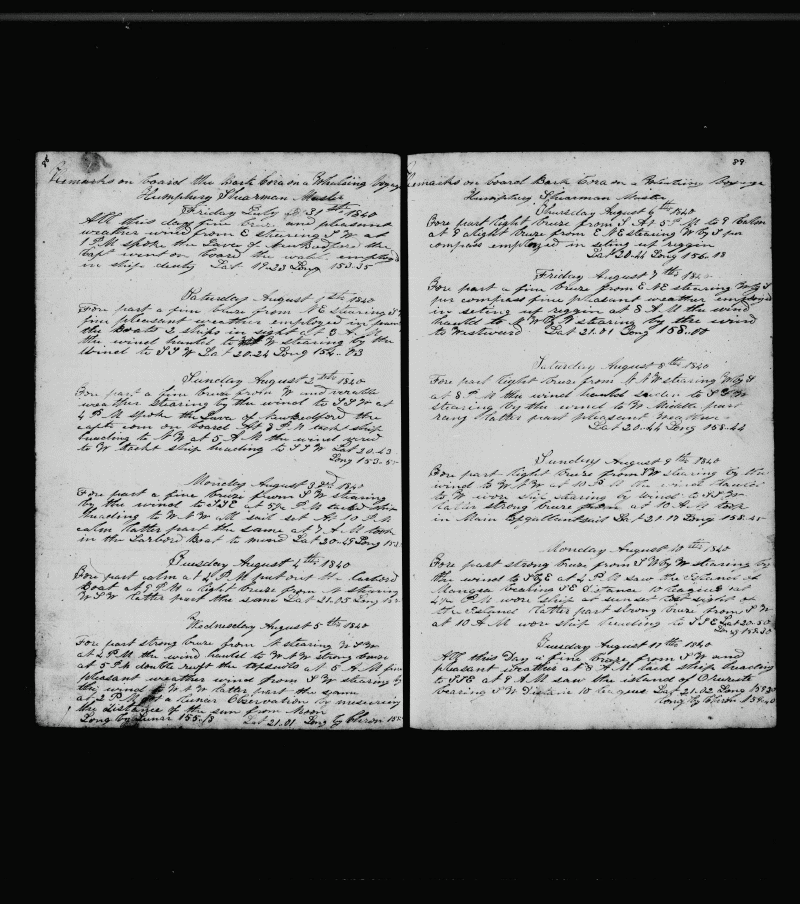 Remarks on board the Bark Cora on a Whaling Voyage
Humphrey Shearman Master
Friday July 31st 1840
All this day fine breze and pleasant
weather wind from E stearing S W at
1 P M spoke the Love of New Bedford the
Capt went on board the watch employed
in ships duty Lat 19.23 Long 153.35
Saturday August 1st 1840
Fore part a fine breze from N E stearing S
fine pleasant weather employed in
the Boats 2 ships in sight at 8 A M
the wind hauled to W stearing by the
Wind to S S W Lat 20.24 Long 154.03
Sunday August 2 1840
Fore part a fine breze from W and varable
weather stearing by the wind to S S W at
4 P M spoke the Love of New Bedford the
capt com on board At 8 P M tackt ship
heading to N W at 5 A M the wind
to W tackt ship heading to S S W Lat 20.43
Long 153.5
Monday August 3 1840
Fore part a fine breze from S W stearing
by the wind to S S E at P M tackt ship
heading to W N W all sail set At 10 P M
calm latter part the same at 7 A M took
in the Larbord Boat to mend Lat 20.49 Long 153
Tuesday August 4th 1840
Fore part calm at 4 P M put out the Larbord
Boat at 9 P M a light breze from N stearing
W S W latter part the same Lat 21.05 Long
Wednesday August 5th 1840
Fore part strong breze from N stearing W S W
at 2 P M the wind hauled to W N W strong breze
at 5 P M double reeft the topsails at 5 A M fine
pleasant weather wind from S W stearing by
the wind to W N W latter part the same
at 2 P M a Lunar Observation by measuring
the distance of the sun from Moon
Long by Lunar 155.18 Lat 21.01 Long by Chron 155
89
Remarks on board Bark Cora on a Whaling Voyage
Humphrey Shearman Master
Thursday August 6th 1840
Fore part light breze from S At 5 P M to 9 Calm
at 9 a light breze from E N E stearing W by S per
compass employed in seting up reggin
Lat 20.44 Long 156.18
Friday August 7th 1840
Fore part a fine breze from E N E stearing W by S
per compass fine pleasant weather employed
in seting up reggin at 8 A M the wind
hauled to N W by N stearing by the wind
to Westward Lat 21.01 Long 158.00
Saturday August 8th 1840
Fore part light breze from N N W stearing W by S
at 8 P M the wind hauled to S S W
stearing by the wind to W Middle part
rany latter part pleasant weather
Lat 20.44 Long 158.44
Sunday August 9th 1840
Fore part light breze from S W stearing by the
wind to W N W at 10 P M the wind hauled
to W wore ship stearing by wind to S S W
latter strong breze from at 10 A M took
in Main topgallantsail Lat 21.17 Long 158.45
Monday August 10th 1840
Fore part strong breze from S W by W stearing by
the wind to S by E at 4 P M saw the Island of
Mangea bearing S E Distance 10 leagues at
P M wore ship at sunset lost sight of
the Island latter part strong breze from S W
at 10 A M wore ship heading to S S E Lat 20.50
Long 158.30
Tuesday August 11th 1840
All this Day a fine breze from S W and
pleasant weather at 8 A M tack ship heading
to S S E at 9 A M saw the island of
bearing S W Distance 10 leagues Lat 21.02 Long 159.30
Long by Chron 159.40